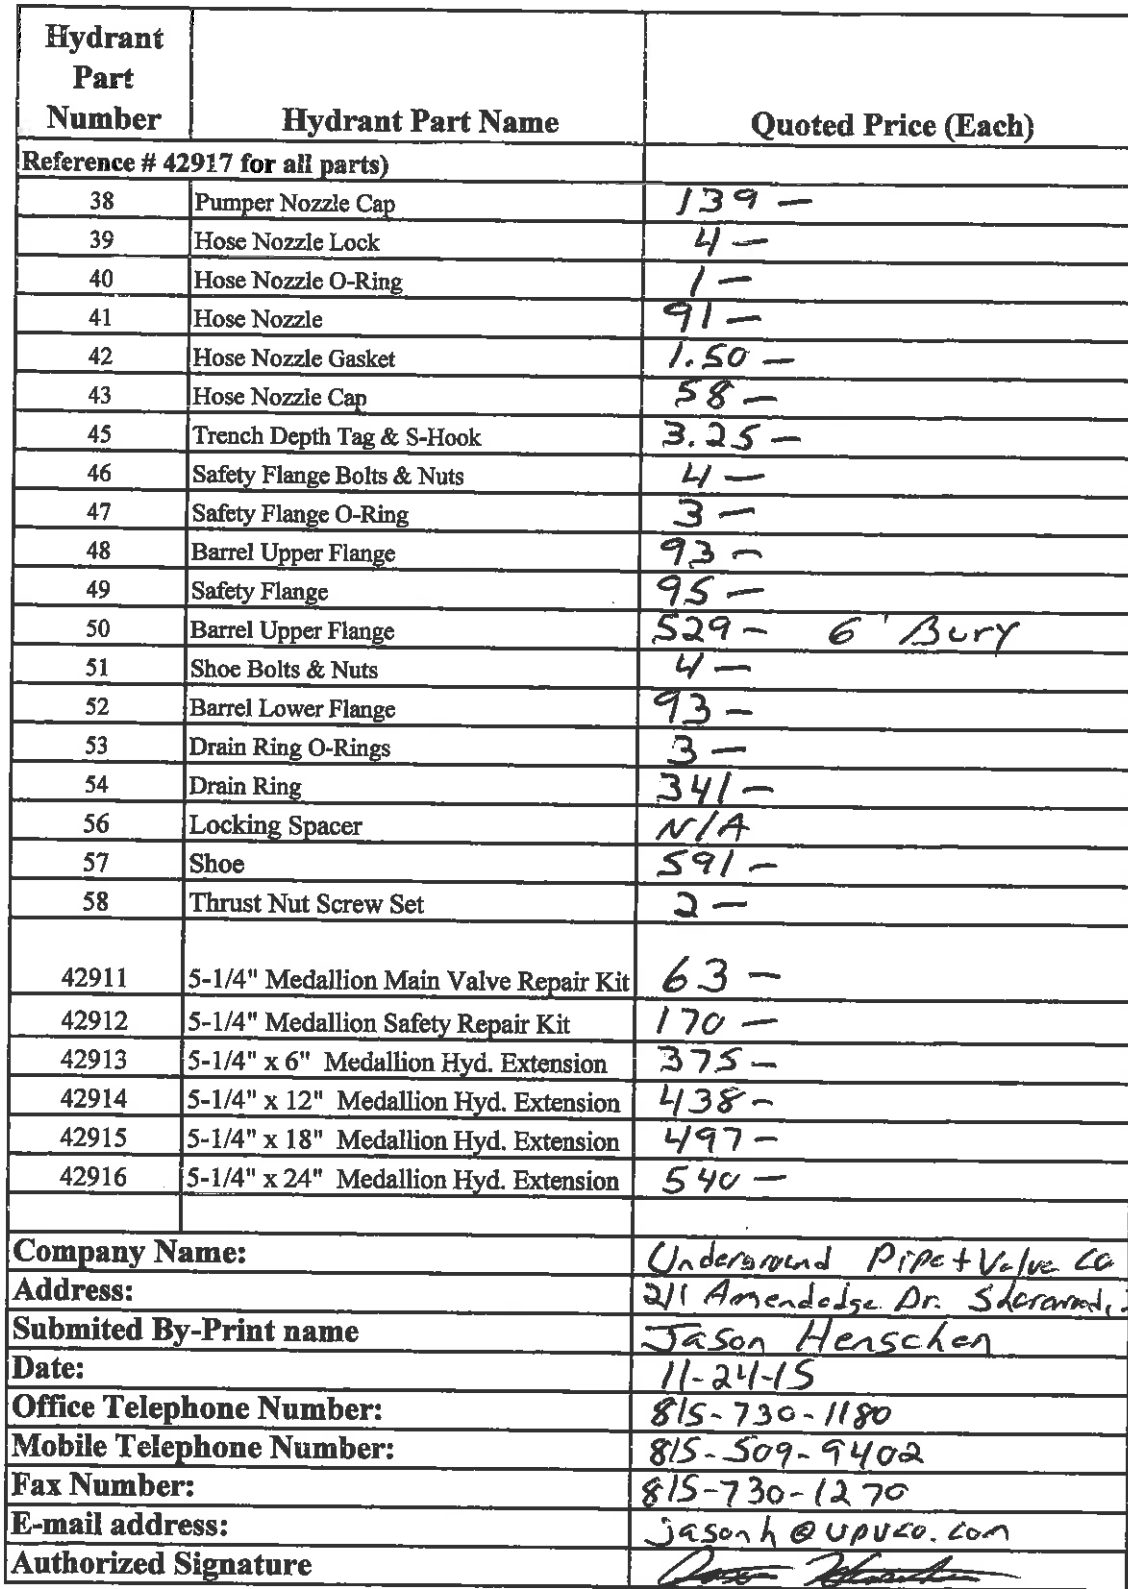 Hydrant Part Number Hydrant Part Name Quoted Price (Each)
Reference # 42917 for all parts)
38 Pumper Nozzle Cap 139 —
39 Hose Nozzle Lock 4 —
40 Hose Nozzle O-Ring 1 —
41 Hose Nozzle 91 —
42 Hose Nozzle Gasket 1.50 —
43 Hose Nozzle Cap 58 —
45 Trench Depth Tag & S-Hook 3.25 —
46 Safety Flange Bolts & Nuts 4 —
47 Safety Flange O-Ring 3 —
48 Barrel Upper Flange 93 —
49 Safety Flange 95 —
50 Barrel Upper Flange 529 — 6' Bury
51 Shoe Bolts & Nuts 4 —
52 Barrel Lower Flange 93 —
53 Drain Ring O-Rings 3 —
54 Drain Ring 341 —
56 Locking Spacer N/A
57 Shoe 591 —
58 Thrust Nut Screw Set 2 —
42911 5-1/4" Medallion Main Valve Repair Kit 63 —
42912 5-1/4" Medallion Safety Repair Kit 170 —
42913 5-1/4" x 6" Medallion Hyd. Extension 375 —
42914 5-1/4" x 12" Medallion Hyd. Extension 438 —
42915 5-1/4" x 18" Medallion Hyd. Extension 497 —
42916 5-1/4" x 24" Medallion Hyd. Extension 540 —
Company Name: Underground Pipe + Valve Co
Address: 211 Amendodge Dr. Shorewood,
Submited By-Print name Jason Henschen
Date: 11-24-15
Office Telephone Number: 815-730-1180
Mobile Telephone Number: 815-509-9402
Fax Number: 815-730-1270
E-mail address: jasonh@upvco.com
Authorized Signature